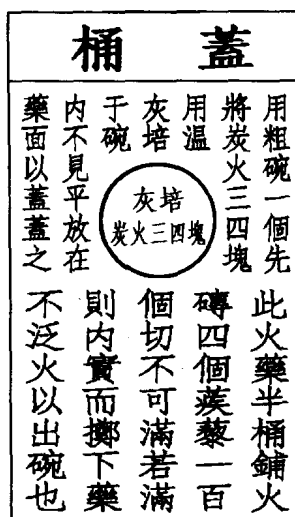 蓋桶
用粗碗一個先
將炭火三四塊
用溫
灰培
于碗
內不見平放在
藥面以蓋蓋之
灰培
炭火三四塊
此火藥半桶鋪火
磚四個蒺藜一百
個切不可滿若滿
則內實而擲下藥
不泛火以出碗也